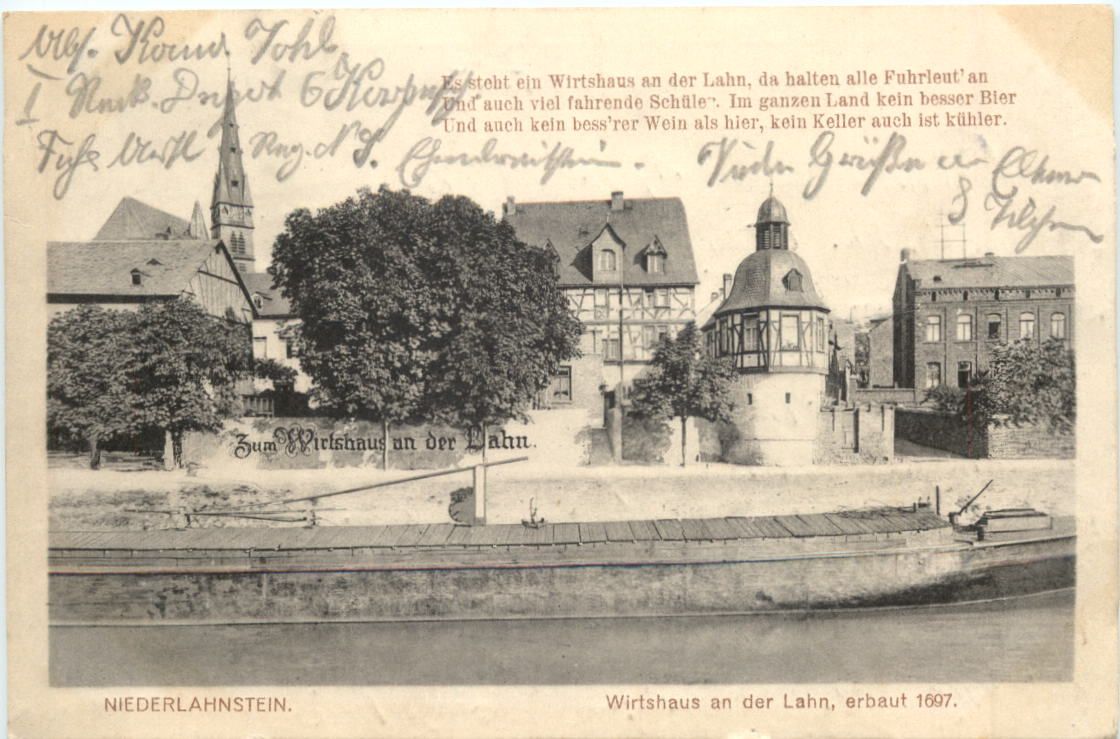 Abs. Kan. Tohl
I Rek. Depot 6 Komp
Fuß Artl Reg. N 3. Ehrenbreitstein.
Viele Grüße an
Es steht ein Wirtshaus an der Lahn, da halten alle Fuhrleut' an
Und auch viel fahrende Schüler. Im ganzen Land kein besser Bier
Und auch kein bess'rer Wein als hier, kein Keller auch ist kühler.
Zum Wirtshaus an der Lahn.
NIEDERLAHNSTEIN.
Wirtshaus an der Lahn, erbaut 1697.